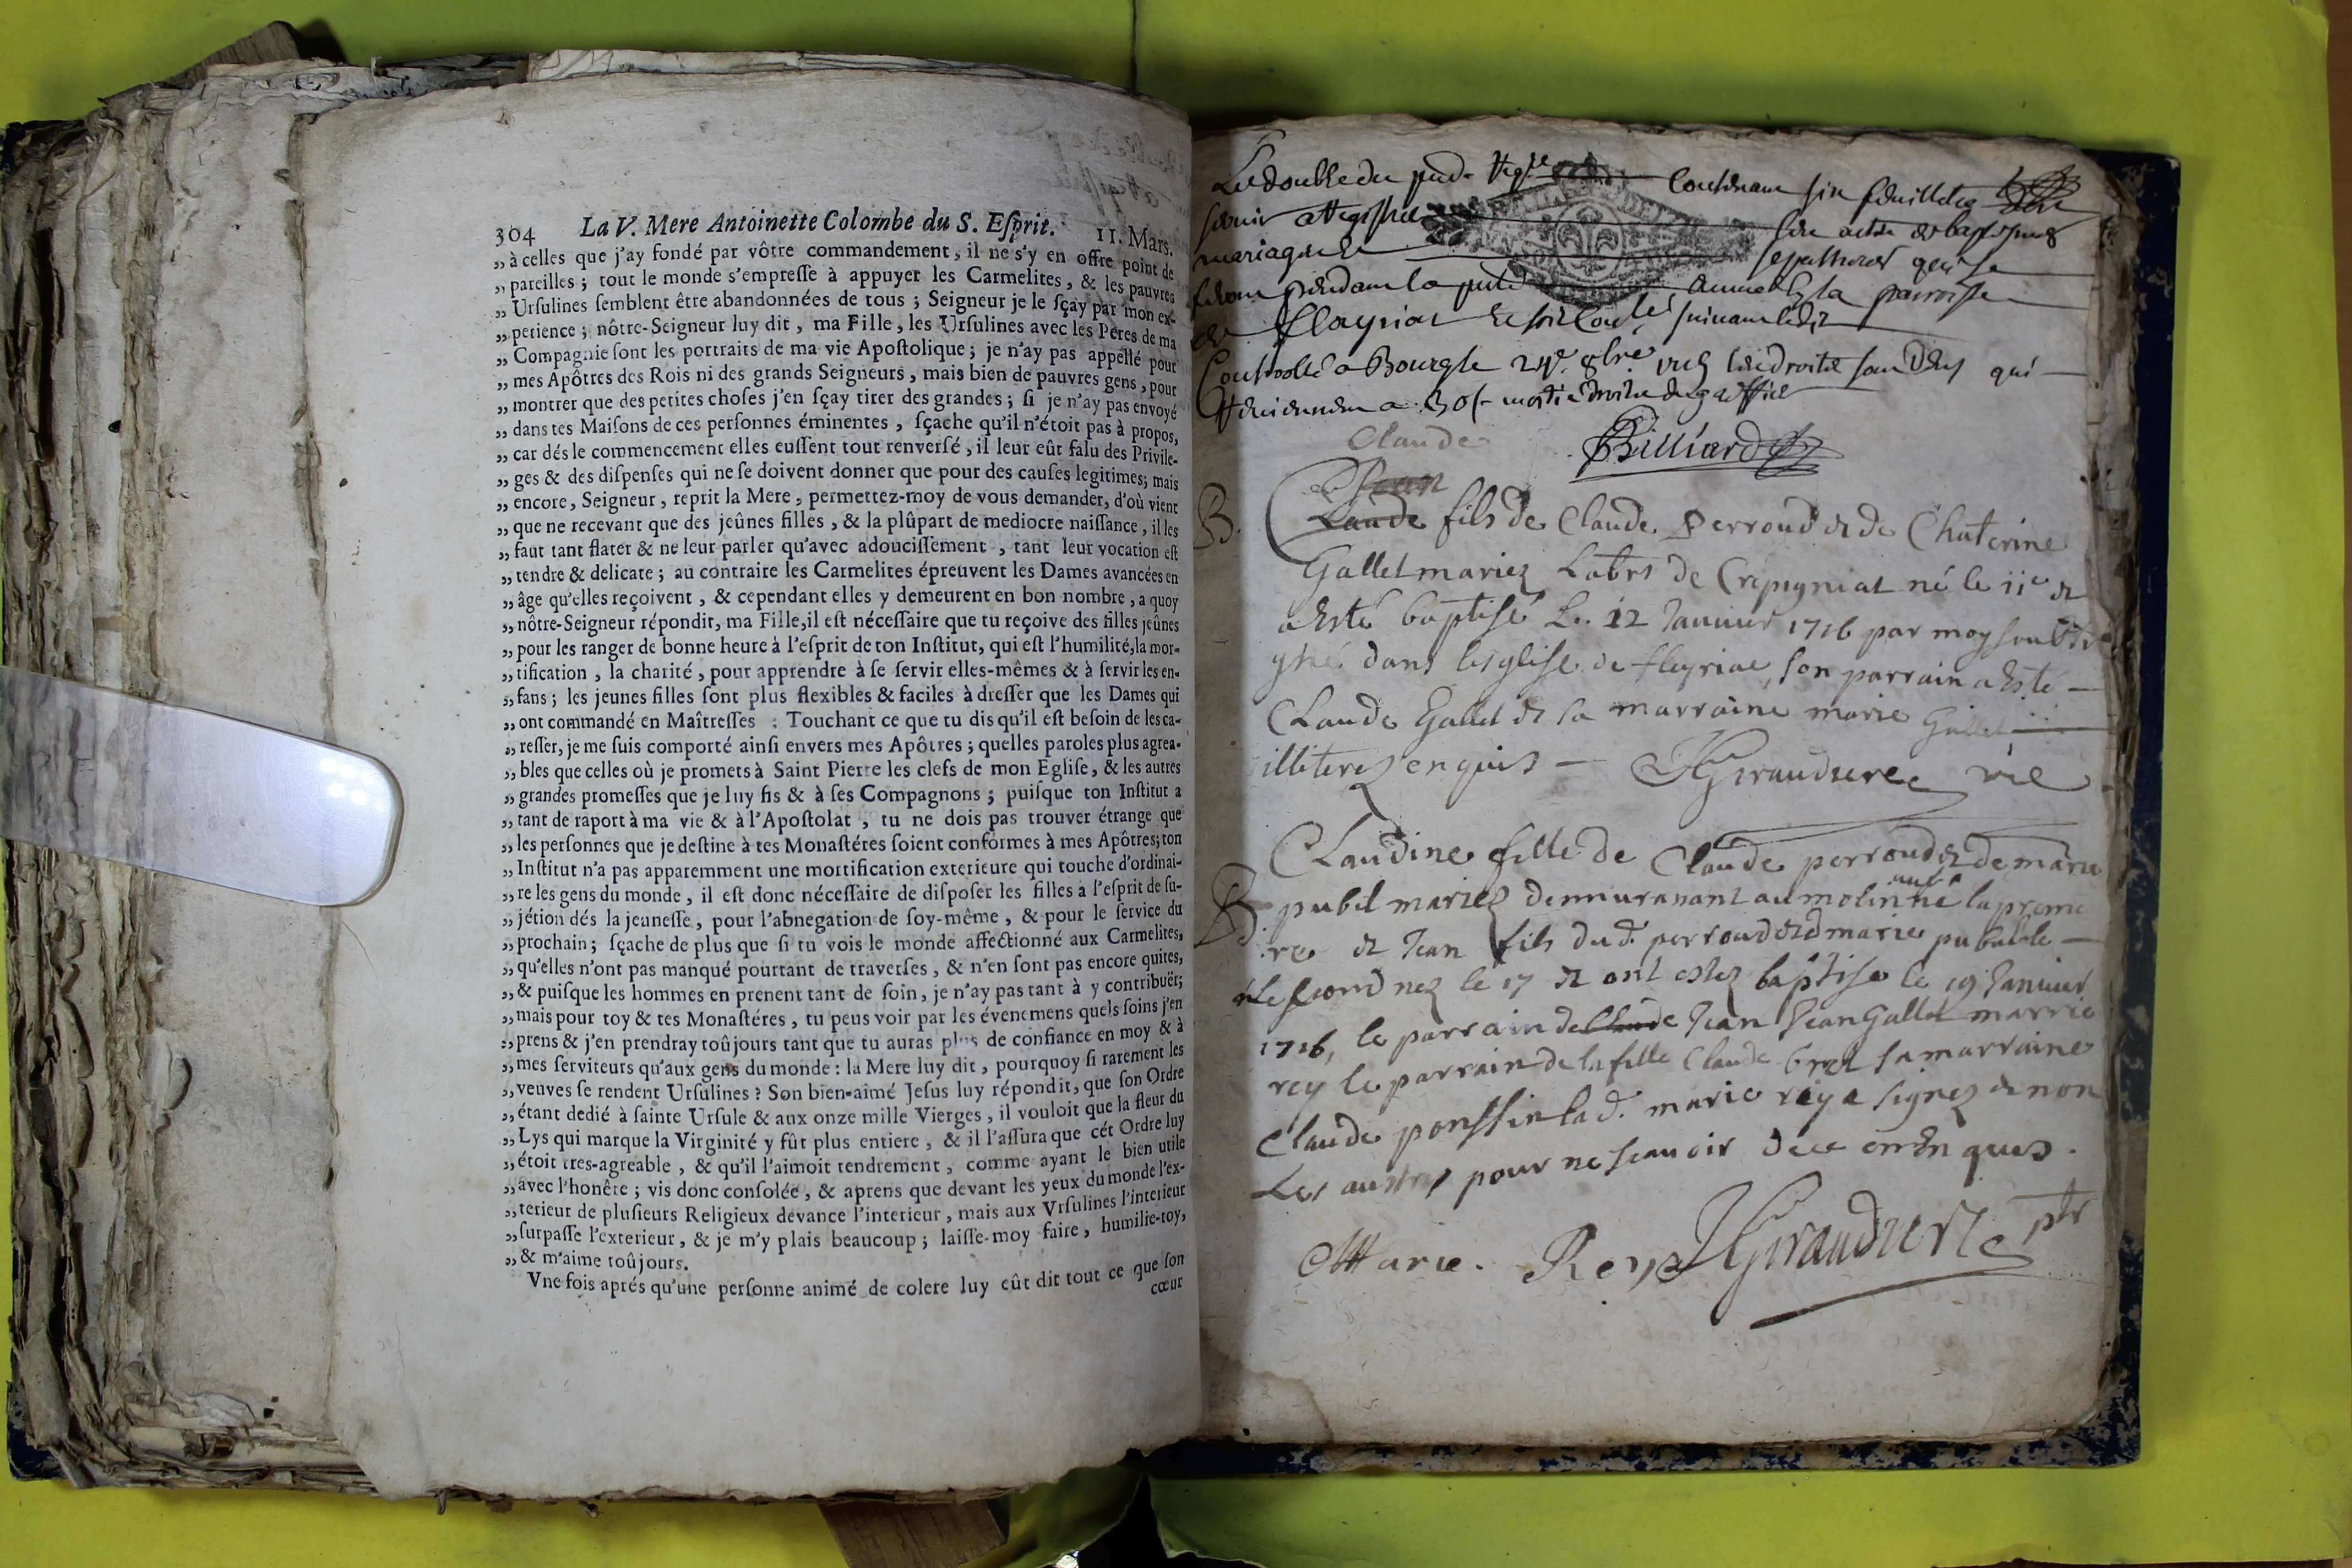 304 La V. Mere Antoinette Colombe du S. Eſprit. 11. Mars.
„ à celles que j'ay fondé par vôtre commandement, il ne s'y en offre point de
„ pareilles ; tout le monde s'empreſſe à appuyer les Carmelites, & les pauvres
„ Urſulines ſemblent être abandonnées de tous ; Seigneur je le ſçay par mon ex-
„ perience ; nôtre-Seigneur luy dit, ma Fille, les Urſulines avec les Peres de ma
„ Compagnie ſont les portraits de ma vie Apoſtolique ; je n'ay pas appellé pour
„ mes Apôtres des Rois ni des grands Seigneurs, mais bien de pauvres gens, pour
„ montrer que des petites choſes j'en ſçay tirer des grandes ; ſi je n'ay pas envoyé
„ dans tes Maiſons de ces perſonnes éminentes, ſçache qu'il n'étoit pas à propos,
„ car dés le commencement elles euſſent tout renverſé, il leur eût falu des Privile-
„ ges & des diſpenſes qui ne ſe doivent donner que pour des cauſes legitimes; mais
„ encore, Seigneur, reprit la Mere, permettez-moy de vous demander, d'où vient
„ que ne recevant que des jeûnes filles, & la plûpart de mediocre naiſſance, il les
„ faut tant flater & ne leur parler qu'avec adouciſſement, tant leur vocation eſt
„ tendre & delicate ; au contraire les Carmelites épreuvent les Dames avancées en
„ âge qu'elles reçoivent, & cependant elles y demeurent en bon nombre, a quoy
„ nôtre-Seigneur répondit, ma Fille, il eſt néceſſaire que tu reçoive des filles jeûnes
„ pour les ranger de bonne heure à l'eſprit de ton Inſtitut, qui eſt l'humilité, la mor-
„ tification, la charité, pour apprendre à ſe ſervir elles-mêmes & à ſervir les en-
„ fans ; les jeunes filles ſont plus flexibles & faciles à dreſſer que les Dames qui
„ ont commandé en Maîtreſſes : Touchant ce que tu dis qu'il eſt beſoin de les ca-
„ reſſer, je me ſuis comporté ainſi envers mes Apôtres ; quelles paroles plus agrea-
„ bles que celles où je promets à Saint Pierre les clefs de mon Egliſe, & les autres
„ grandes promeſſes que je luy fis & à ſes Compagnons ; puiſque ton Inſtitut a
„ tant de raport à ma vie & à l'Apoſtolat, tu ne dois pas trouver étrange que
„ les perſonnes que je deſtine à tes Monaſtéres ſoient conformes à mes Apôtres; ton
„ Inſtitut n'a pas apparemment une mortification exterieure qui touche d'ordinai-
„ re les gens du monde, il eſt donc néceſſaire de diſpoſer les filles à l'eſprit de ſu-
„ jétion dés la jeuneſſe, pour l'abnegation de ſoy-même, & pour le ſervice du
„ prochain ; ſçache de plus que ſi tu vois le monde affectionné aux Carmelites,
„ qu'elles n'ont pas manqué pourtant de traverſes, & n'en ſont pas encore quites,
„ & puiſque les hommes en prenent tant de ſoin, je n'ay pas tant à y contribuër;
„ mais pour toy & tes Monaſtéres, tu peus voir par les évenemens quels ſoins j'en
„ prens & j'en prendray toûjours tant que tu auras plus de confiance en moy & à
„ mes ſerviteurs qu'aux gens du monde : la Mere luy dit, pourquoy ſi rarement les
„ veuves ſe rendent Urſulines ? Son bien-aimé Jeſus luy répondit, que ſon Ordre
„ étant dedié à ſainte Urſule & aux onze mille Vierges, il vouloit que la fleur du
„ Lys qui marque la Virginité y fût plus entiere, & il l'aſſura que cét Ordre luy
„ étoit tres-agreable, & qu'il l'aimoit tendrement, comme ayant le bien utile
„ avec l'honête ; vis donc conſolée, & aprens que devant les yeux du monde l'ex-
„ terieur de pluſieurs Religieux devance l'interieur, mais aux Vrſulines l'interieur
„ ſurpaſſe l'exterieur, & je m'y plais beaucoup ; laiſſe-moy faire, humilie-toy,
„ & m'aime toûjours.
Vne fois aprés qu'une perſonne animé de colere luy eût dit tout ce que ſon
cœur
Le double du contenant six feuillets
servir a Registre
mariages
pendant la annee la parroisse
de fleyriat
Controllé a Bourg le 24e 8bre qui
Billiard
Claude
Jean
B. Claude fils de Claude Perroud & de Chaterine
Gallet mariez Labrs de Crepigniat né le 11e &
a Esté baptisé Le 12 Janvier 1716 par moy
dans lesglise de fleyriac, son parrain a Esté
Claude Gallet & sa marraine marie Gallet
illiterez enquis
Claudine fille de Claude perroud & de marie
B. pubil mariez demeurant au molin la premie
re & Jean fils dud. perroud & marie
le second nez le 17 & ont estez baptise le 19 Janvier
1716, le parrain de Claude Jean Jean Gallet marrie
rey le parrain de la fille Claude bret sa marraine
Claude ponssin lad. marie rey a signez & non
Les autres pour ne scavoir de ce enquis.
Marie Rey